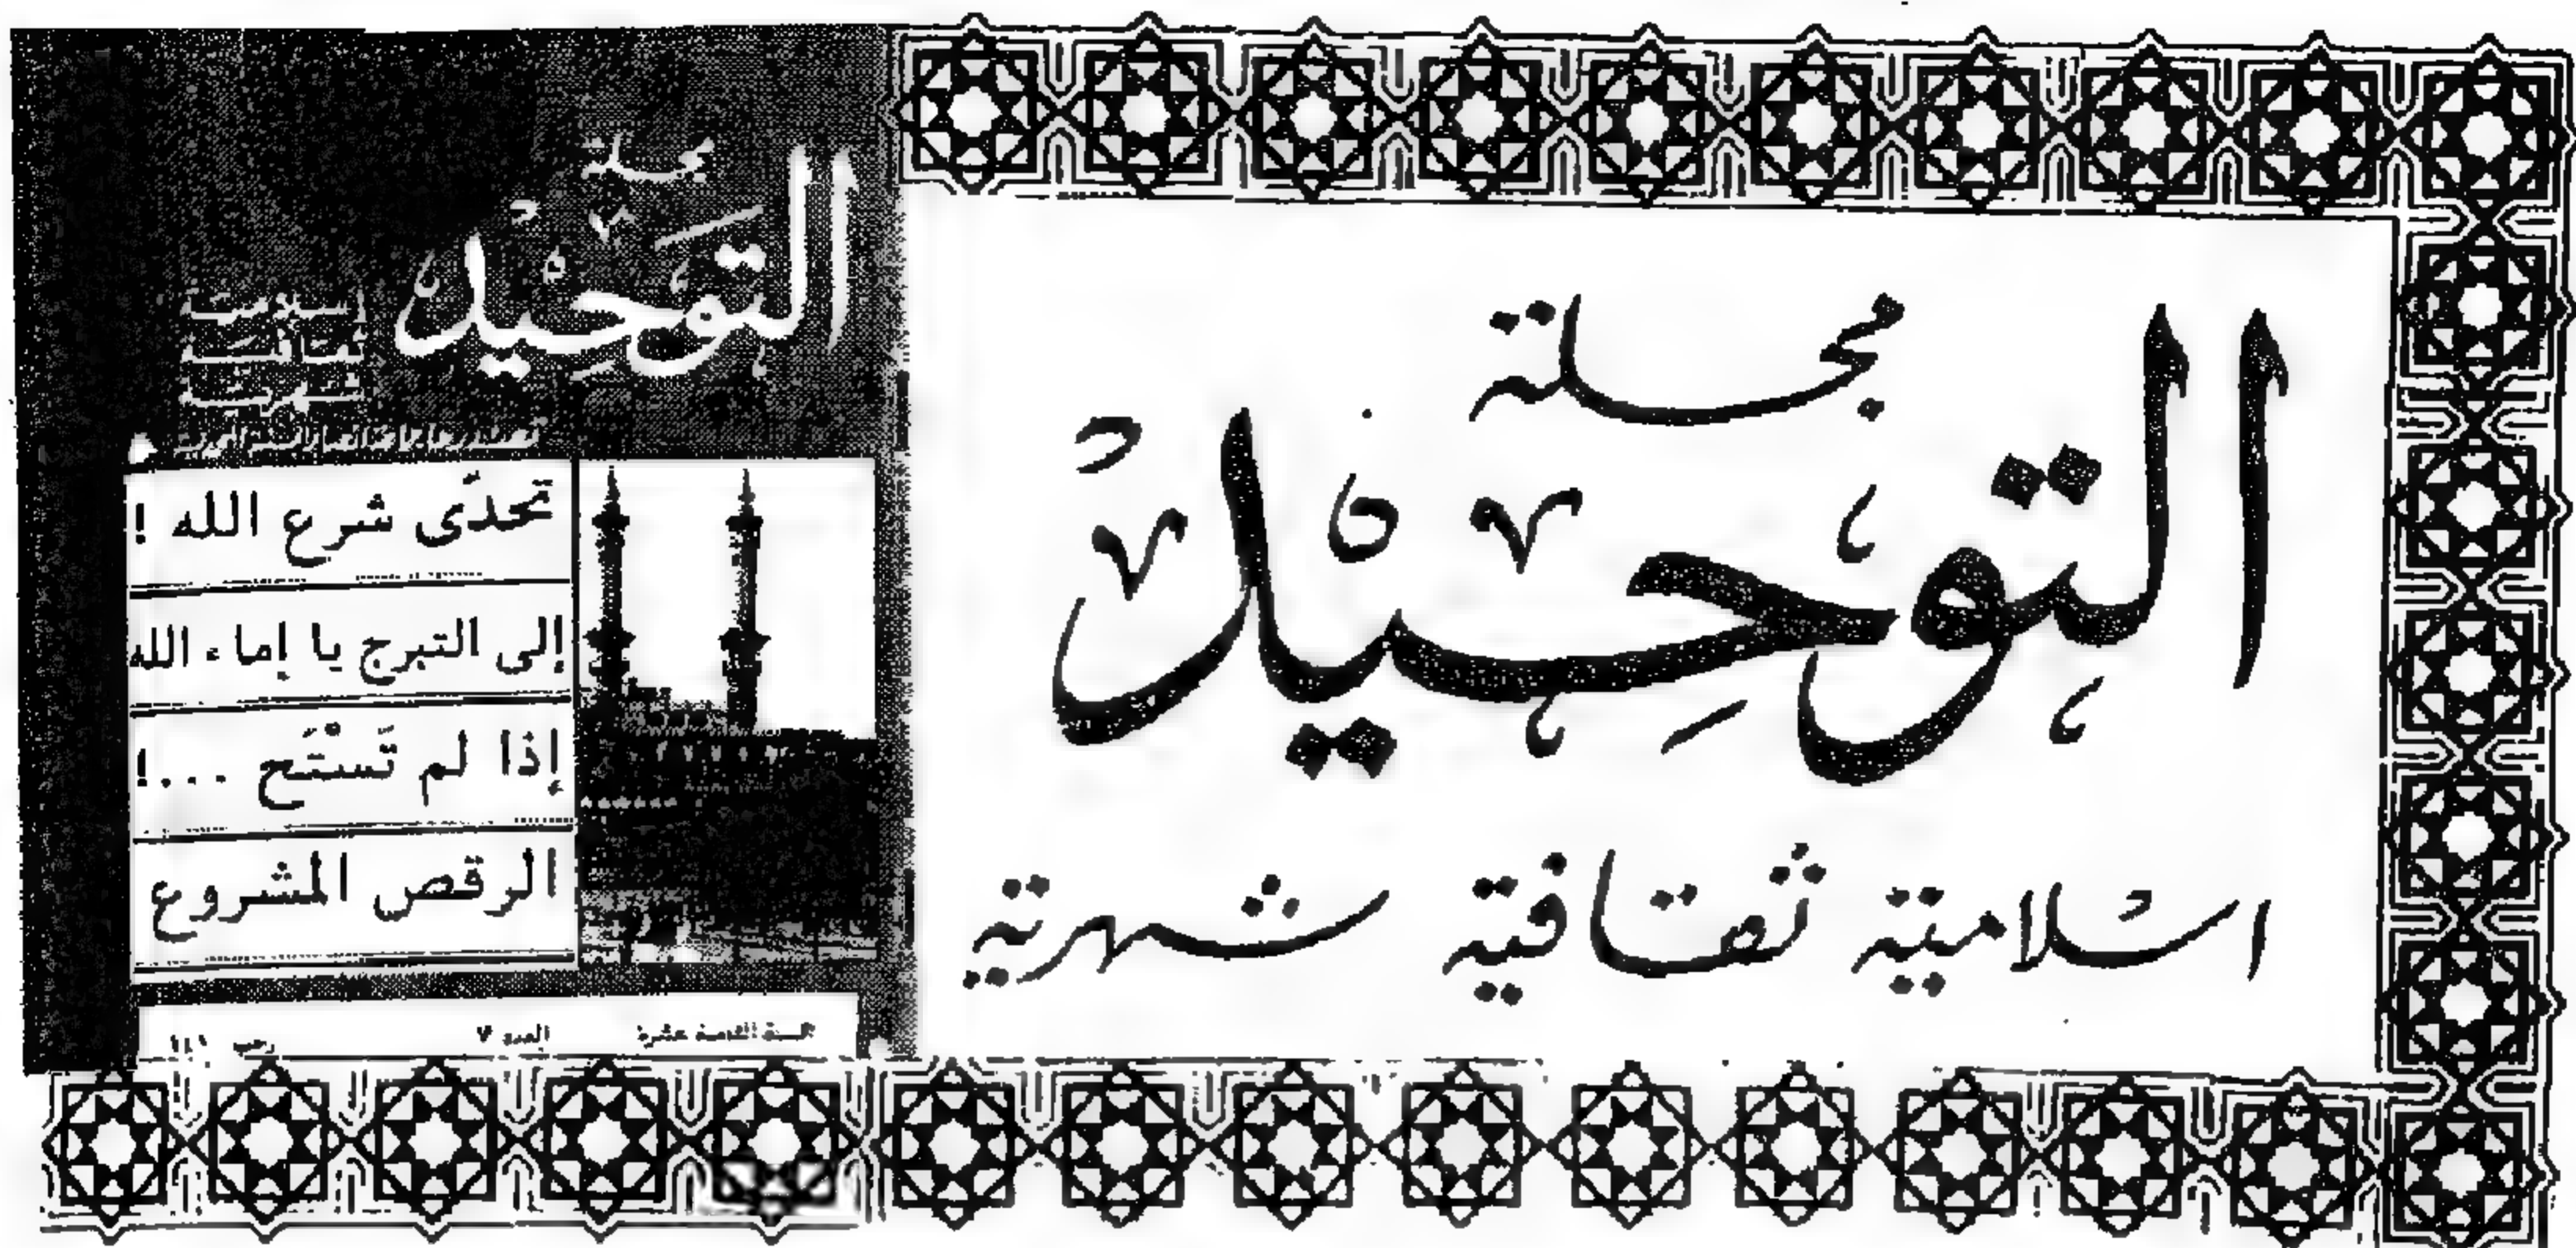 مجلة
التوحيد
اسلامية ثقافية شهرية
مجلة
التوحيد
إسلامية
ثقافية
شهرية
تحدّى شرع الله !
إلى التبرج يا إماء الله
إذا لم تَسْتَح ...!
الرقص المشروع
العدد ٧
رجب